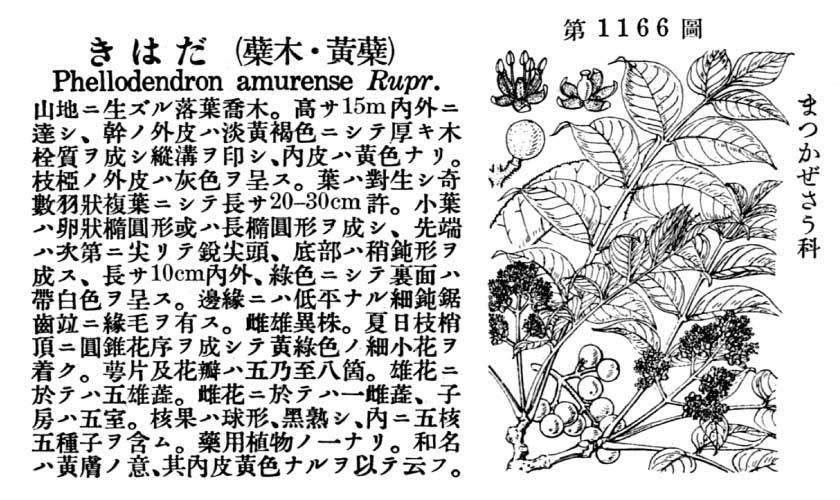 きはだ (蘗木・黃蘗)
Phellodendron amurense Rupr.
山地ニ生ズル落葉喬木。高サ15m內外ニ
達シ、幹ノ外皮ハ淡黃褐色ニシテ厚キ木
栓質ヲ成シ縱溝ヲ印シ、內皮ハ黃色ナリ。
枝椏ノ外皮ハ灰色ヲ呈ス。葉ハ對生シ奇
數羽狀複葉ニシテ長サ20–30cm許。小葉
ハ卵狀橢圓形或ハ長橢圓形ヲ成シ、先端
ハ次第ニ尖リテ銳尖頭、底部ハ稍鈍形ヲ
成ス、長サ10cm內外、綠色ニシテ裏面ハ
帶白色ヲ呈ス。邊緣ニハ低平ナル細鈍鋸
齒竝ニ緣毛ヲ有ス。雌雄異株。夏日枝梢
頂ニ圓錐花序ヲ成シテ黃綠色ノ細小花ヲ
着ク。萼片及花瓣ハ五乃至八箇。雄花ニ
於テハ五雄蕋。雌花ニ於テハ一雌蕋、子
房ハ五室。核果ハ球形、黑熟シ、內ニ五核
五種子ヲ含ム。藥用植物ノ一ナリ。和名
ハ黃膚ノ意、其內皮黃色ナルヲ以テ云フ。
第1166圖
まつかぜさう科